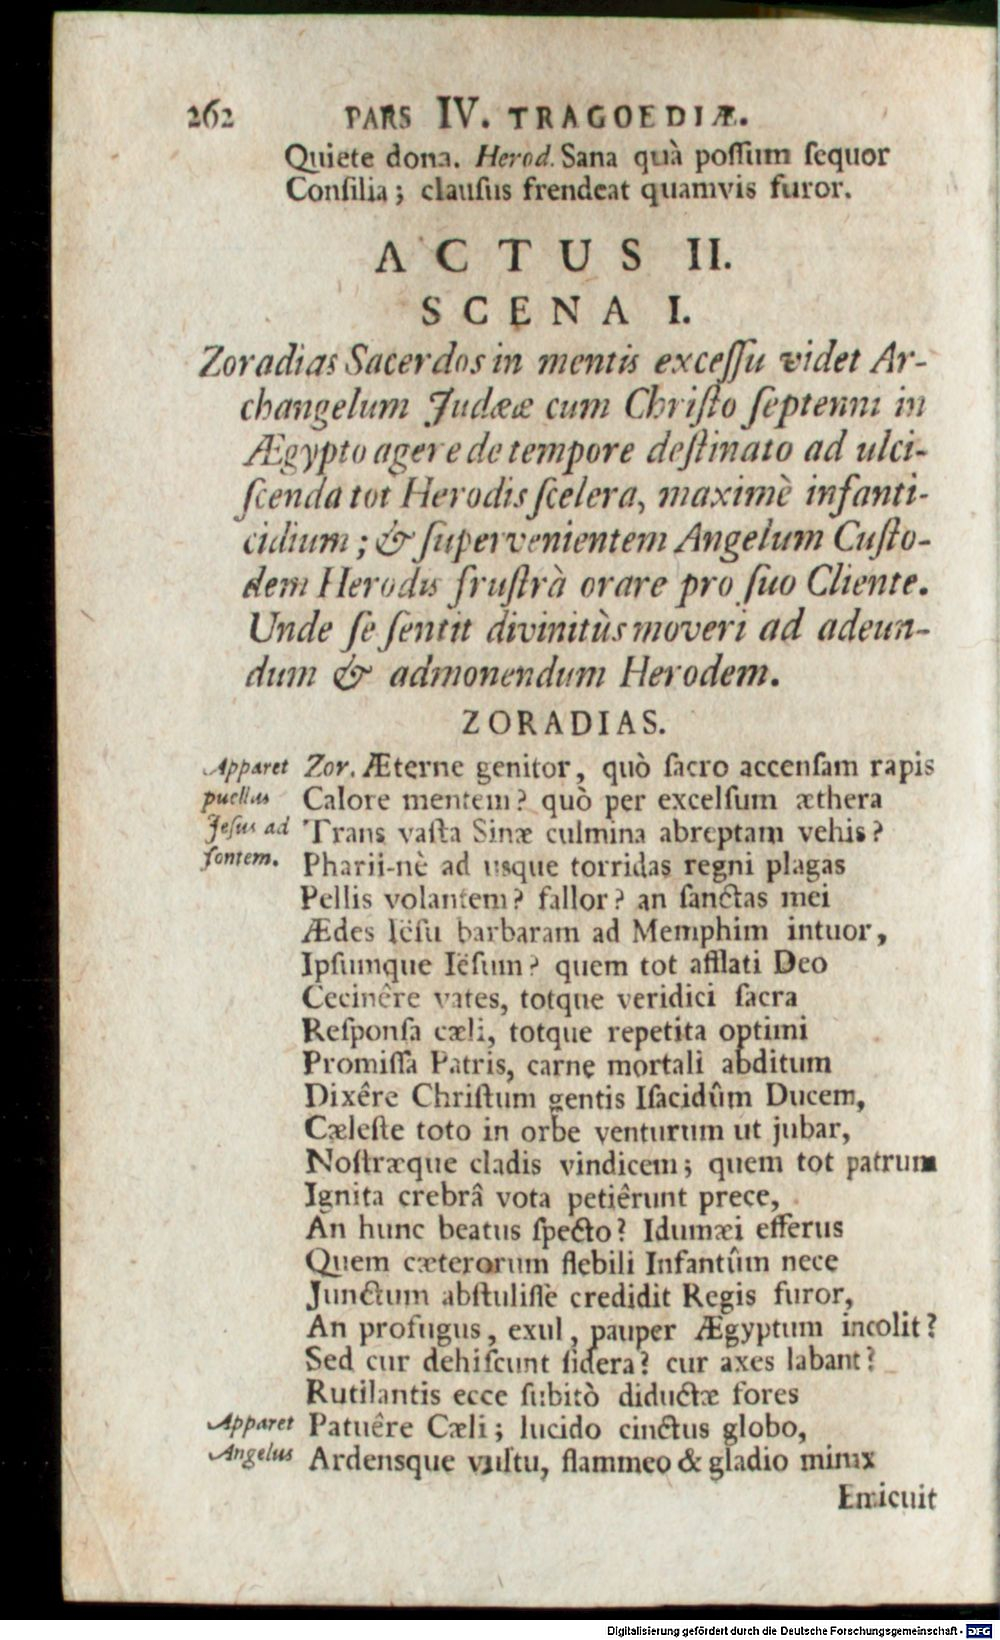 262 PARS IV. TRAGOEDIÆ.
Quiete dona. Herod. Sana quà poſſum ſequor
Conſilia; clauſus frendeat quamvis furor.
ACTUS II.
SCENA I.
Zoradias Sacerdos in mentis exceſſu videt Ar-
changelum Judææ cum Chriſto ſeptenni in
Ægypto agere de tempore deſtinato ad ulci-
ſcenda tot Herodis ſcelera, maximè infanti-
cidium; & ſupervenientem Angelum Cuſto-
dem Herodis fruſtrà orare pro ſuo Cliente.
Unde ſe ſentit divinitùs moveri ad adeun-
dum & admonendum Herodem.
ZORADIAS.
Apparet Zor. Æterne genitor, quò ſacro accenſam rapis
puellus Calore mentem? quò per excelſum æthera
Jeſus ad Trans vaſta Sinæ culmina abreptam vehis?
fontem. Pharii-nè ad uſque torridas regni plagas
Pellis volantem? fallor? an ſanctas mei
Ædes Iëſu barbaram ad Memphim intuor,
Ipſumque Iëſum? quem tot afflati Deo
Cecinêre vates, totque veridici ſacra
Reſponſa cæli, totque repetita optimi
Promiſſa Patris, carne mortali abditum
Dixêre Chriſtum gentis Iſacidûm Ducem,
Cæleſte toto in orbe venturum ut jubar,
Noſtræque cladis vindicem; quem tot patrum
Ignita crebrâ vota petiêrunt prece,
An hunc beatus ſpecto? Idumæi efferus
Quem cæterorum flebili Infantûm nece
Junctum abſtuliſſe credidit Regis furor,
An profugus, exul, pauper Ægyptum incolit?
Sed cur dehiſcunt ſidera? cur axes labant?
Rutilantis ecce ſubitò diductæ fores
Apparet Patuêre Cæli; lucido cinctus globo,
Angelus Ardensque vultu, flammeo & gladio minax
Emicuit
Digitalisierung gefördert durch die Deutsche Forschungsgemeinschaft - DFG